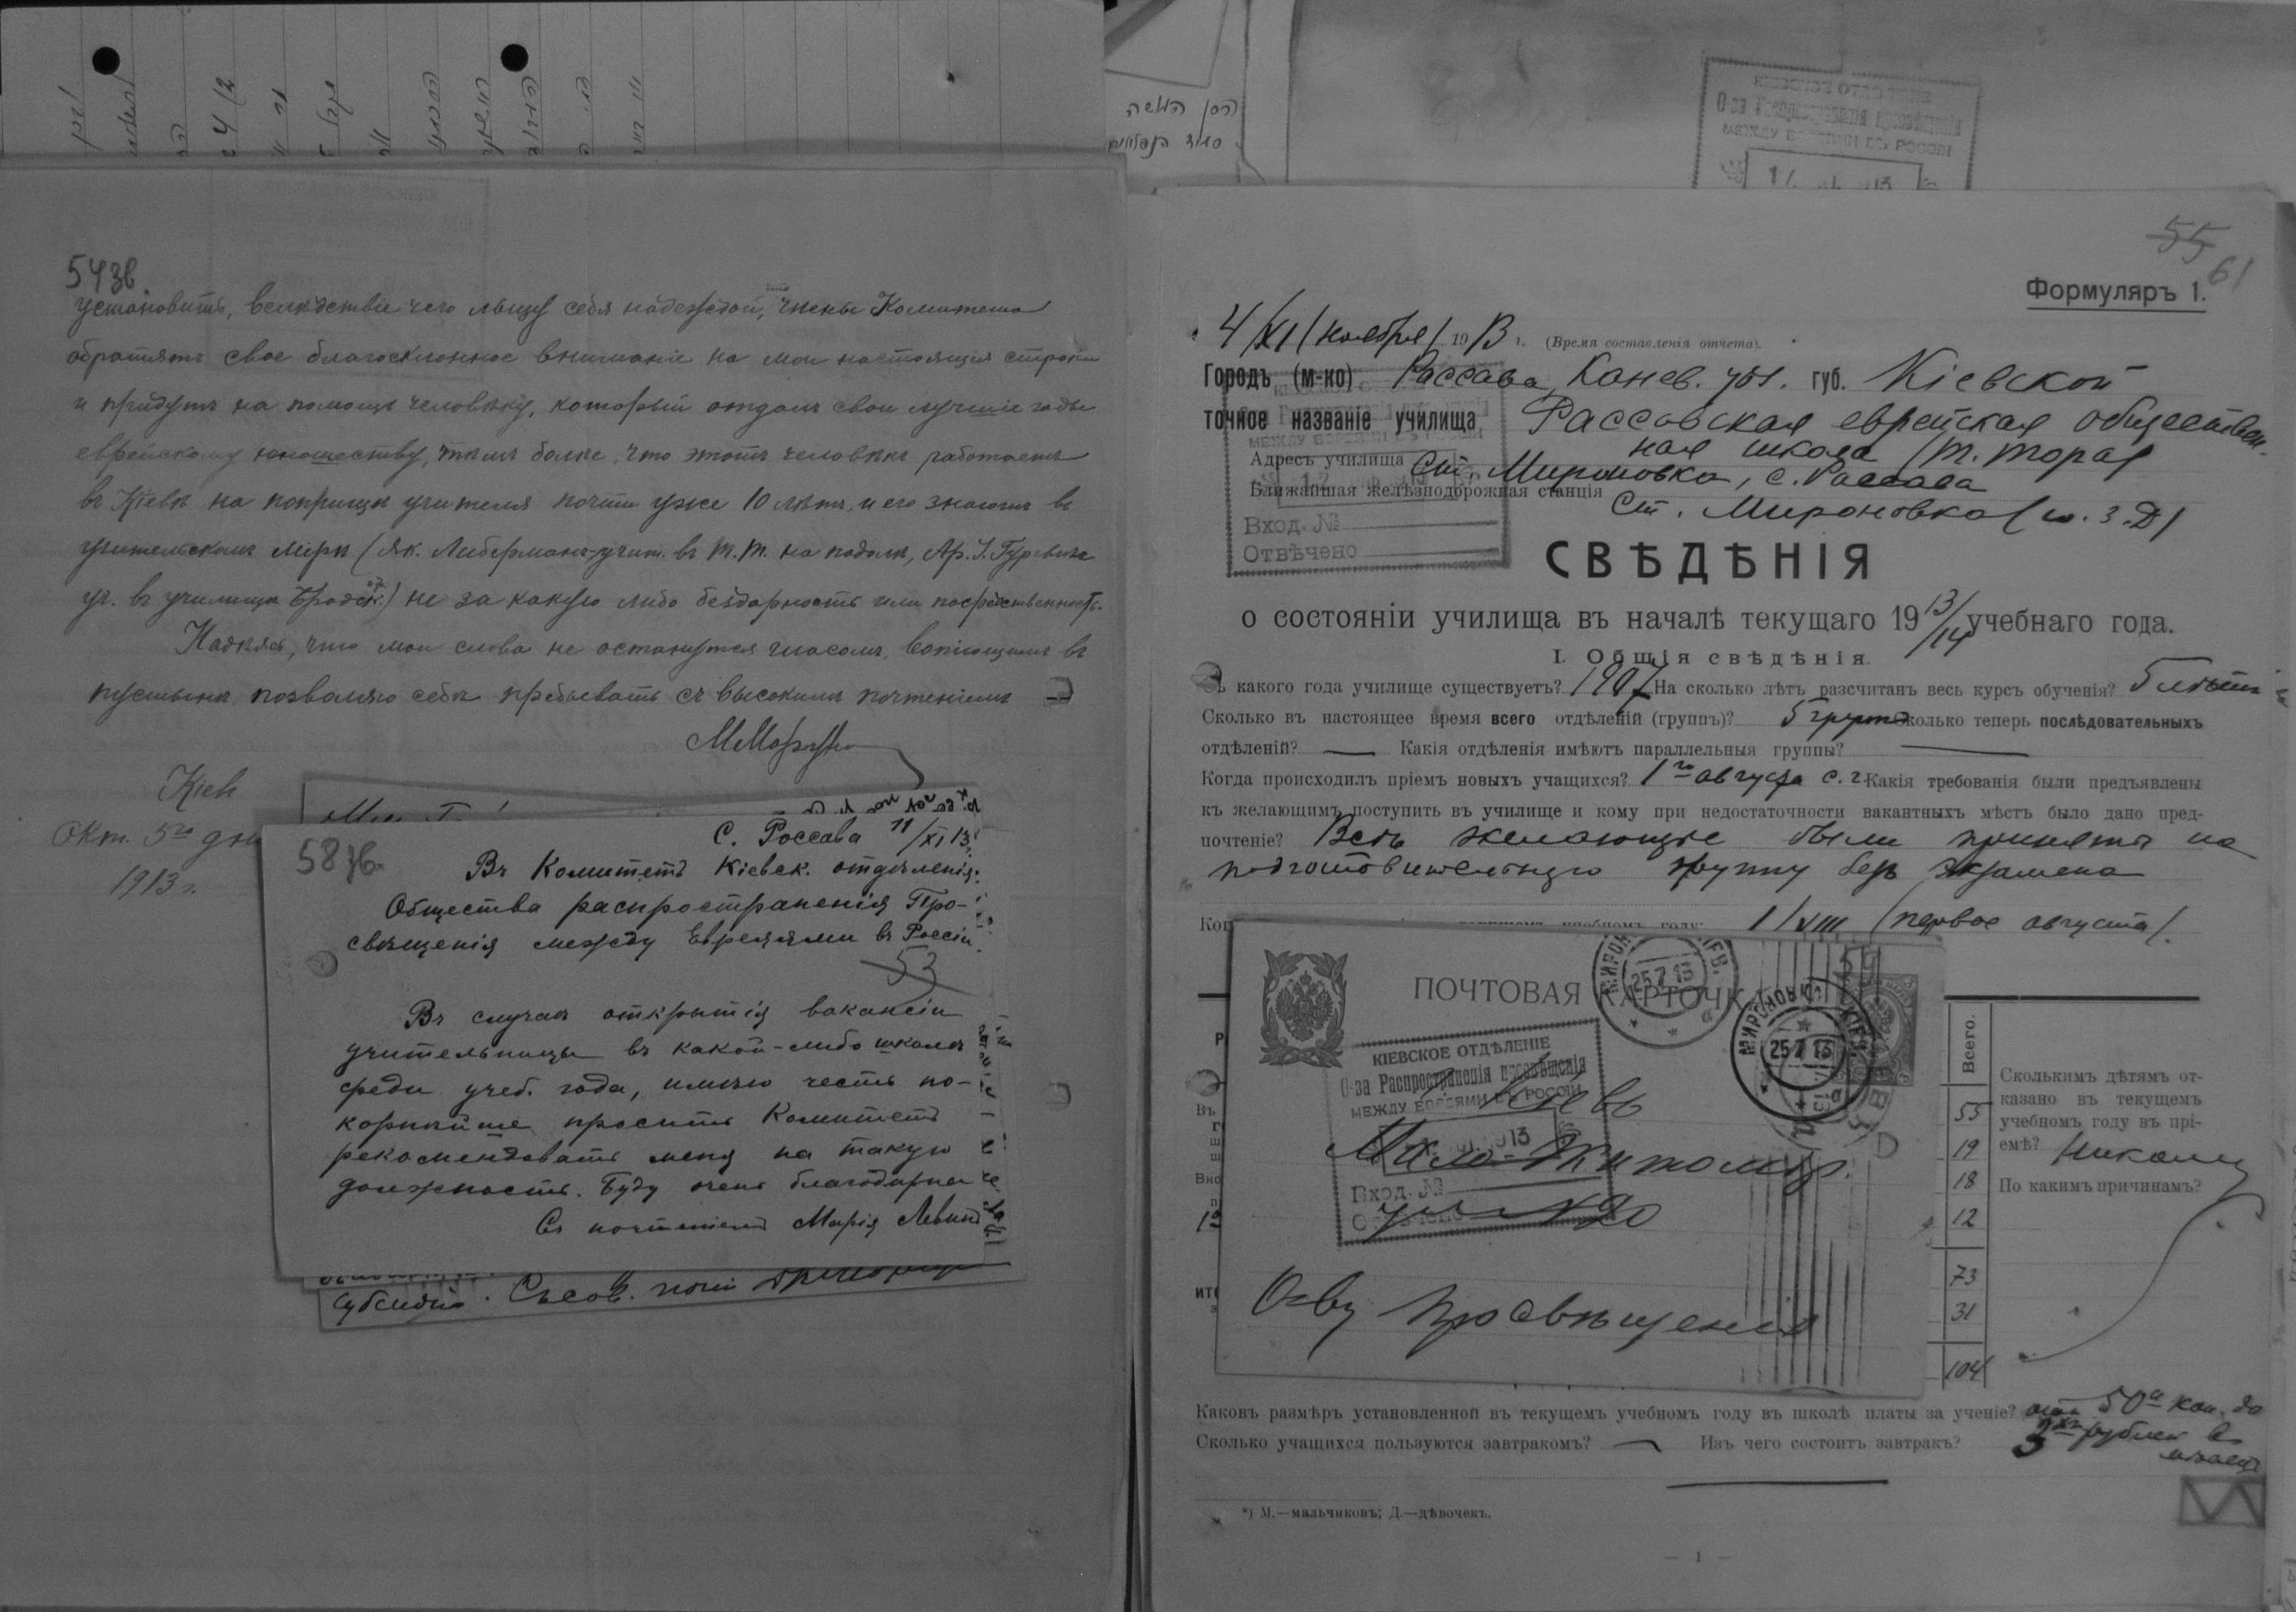 543б
установить, вслѣдствіе чего льщу себя надеждой, что члены Комитета
обратятъ свое благосклонное вниманіе на мои настоящія строки
и придутъ на помощь человѣку, который отдалъ свои лучшіе годы
еврейскому юношеству, тѣмъ болѣе, что этотъ человѣкъ работаетъ
въ Кіевѣ на поприщѣ учителя почти уже 10 лѣтъ, и его знаютъ въ
учительскомъ мірѣ (Як. Либерманъ-учит. въ Т.Т. на подолѣ, Ар. І. Гуревичъ
уч. въ училищѣ Бродск.) не за какую либо бездарность или посредственность.
Надѣясь, что мои слова не останутся гласомъ, вопіющимъ въ
пустынѣ позволяю себѣ пребывать съ высокимъ почтеніемъ
Кіевъ
Окт. 5го дня
1913 г.
58об.
С. Россава 11/XI 13
Въ Комитетъ Кіевск. отдѣленія
Общества распространенія Про-
свѣщенія между Евреями въ Россіи
53
Въ случаѣ открытія вакансіи
учительницы въ какой-либо школѣ
среди учеб. года, имѣю честь по-
корнѣйше просить Комитетъ
рекомендовать меня на такую
должность. Буду очень благодарна
Съ почтеніемъ Марія Левинъ
субсидію.
КІЕВСКОЕ ОТДѢЛЕНІЕ
О-ва Распространенія просвѣщенія
МЕЖДУ ЕВРЕЯМИ ВЪ РОССІИ
55
61
Формуляръ 1.
4/XI (ноября) 1913 г. (Время составленія отчета).
Городъ (м-ко) Россава, Канев. уѣз. губ. Кіевской
точное названіе училища Россовская еврейская обществен-
ная школа (Т. Тора)
Адресъ училища Ст. Мироновка, с. Россава
Ближайшая желѣзнодорожная станція Ст. Мироновка (ю. з. д)
Вход. №
Отвѣчено
СВѢДѢНІЯ
о состояніи училища въ началѣ текущаго 1913/14 учебнаго года.
I. Общія свѣдѣнія.
Съ какого года училище существуетъ? 1907 На сколько лѣтъ разсчитанъ весь курсъ обученія? 5 лѣтъ
Сколько въ настоящее время всего отдѣленій (группъ)? 5 группъ Сколько теперь послѣдовательныхъ
отдѣленій? — Какія отдѣленія имѣютъ параллельныя группы? —
Когда происходилъ пріемъ новыхъ учащихся? 1го августа с. г. Какія требованія были предъявлены
къ желающимъ поступить въ училище и кому при недостаточности вакантныхъ мѣстъ было дано пред-
почтеніе? Всѣ желающіе были приняты на
подготовительную группу безъ экзамена
1/VIII (первое августа).
ПОЧТОВАЯ КАРТОЧКА
25 7 13
25 7 13
КІЕВСКОЕ ОТДѢЛЕНІЕ
О-ва Распространенія просвѣщенія
МЕЖДУ ЕВРЕЯМИ ВЪ РОССІИ
Вход. №
Кіевъ
Мало-Житомир.
ул. №20
О-ву просвѣщенія
Всего.
55
19
18
12
73
31
104
Сколькимъ дѣтямъ от-
казано въ текущемъ
учебномъ году въ прі-
емѣ? Никому
По какимъ причинамъ?
Каковъ размѣръ установленной въ текущемъ учебномъ году въ школѣ платы за ученіе? отъ 50и коп. до
3хъ рублей въ
мѣсяцъ
Сколько учащихся пользуются завтракомъ? — Изъ чего состоитъ завтракъ?
*) М.—мальчиковъ; Д.—дѣвочекъ.
— 1 —